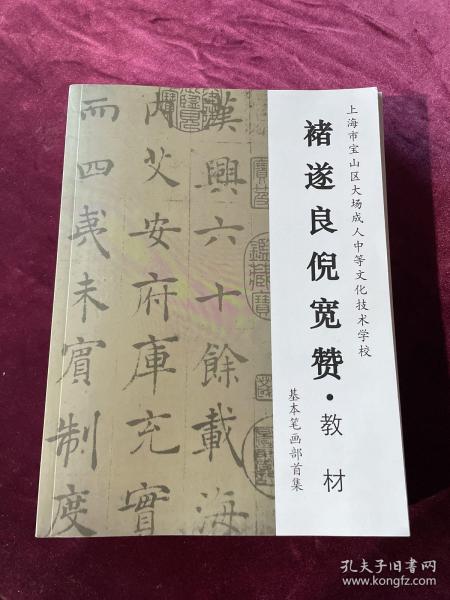 上海市宝山区大场成人中等文化技术学校
褚遂良倪宽赞·教材
基本笔画部首集
漢興六十餘載海
内艾安府庫充實
而四夷未賓制度
孔夫子旧书网
www.kongfz.com